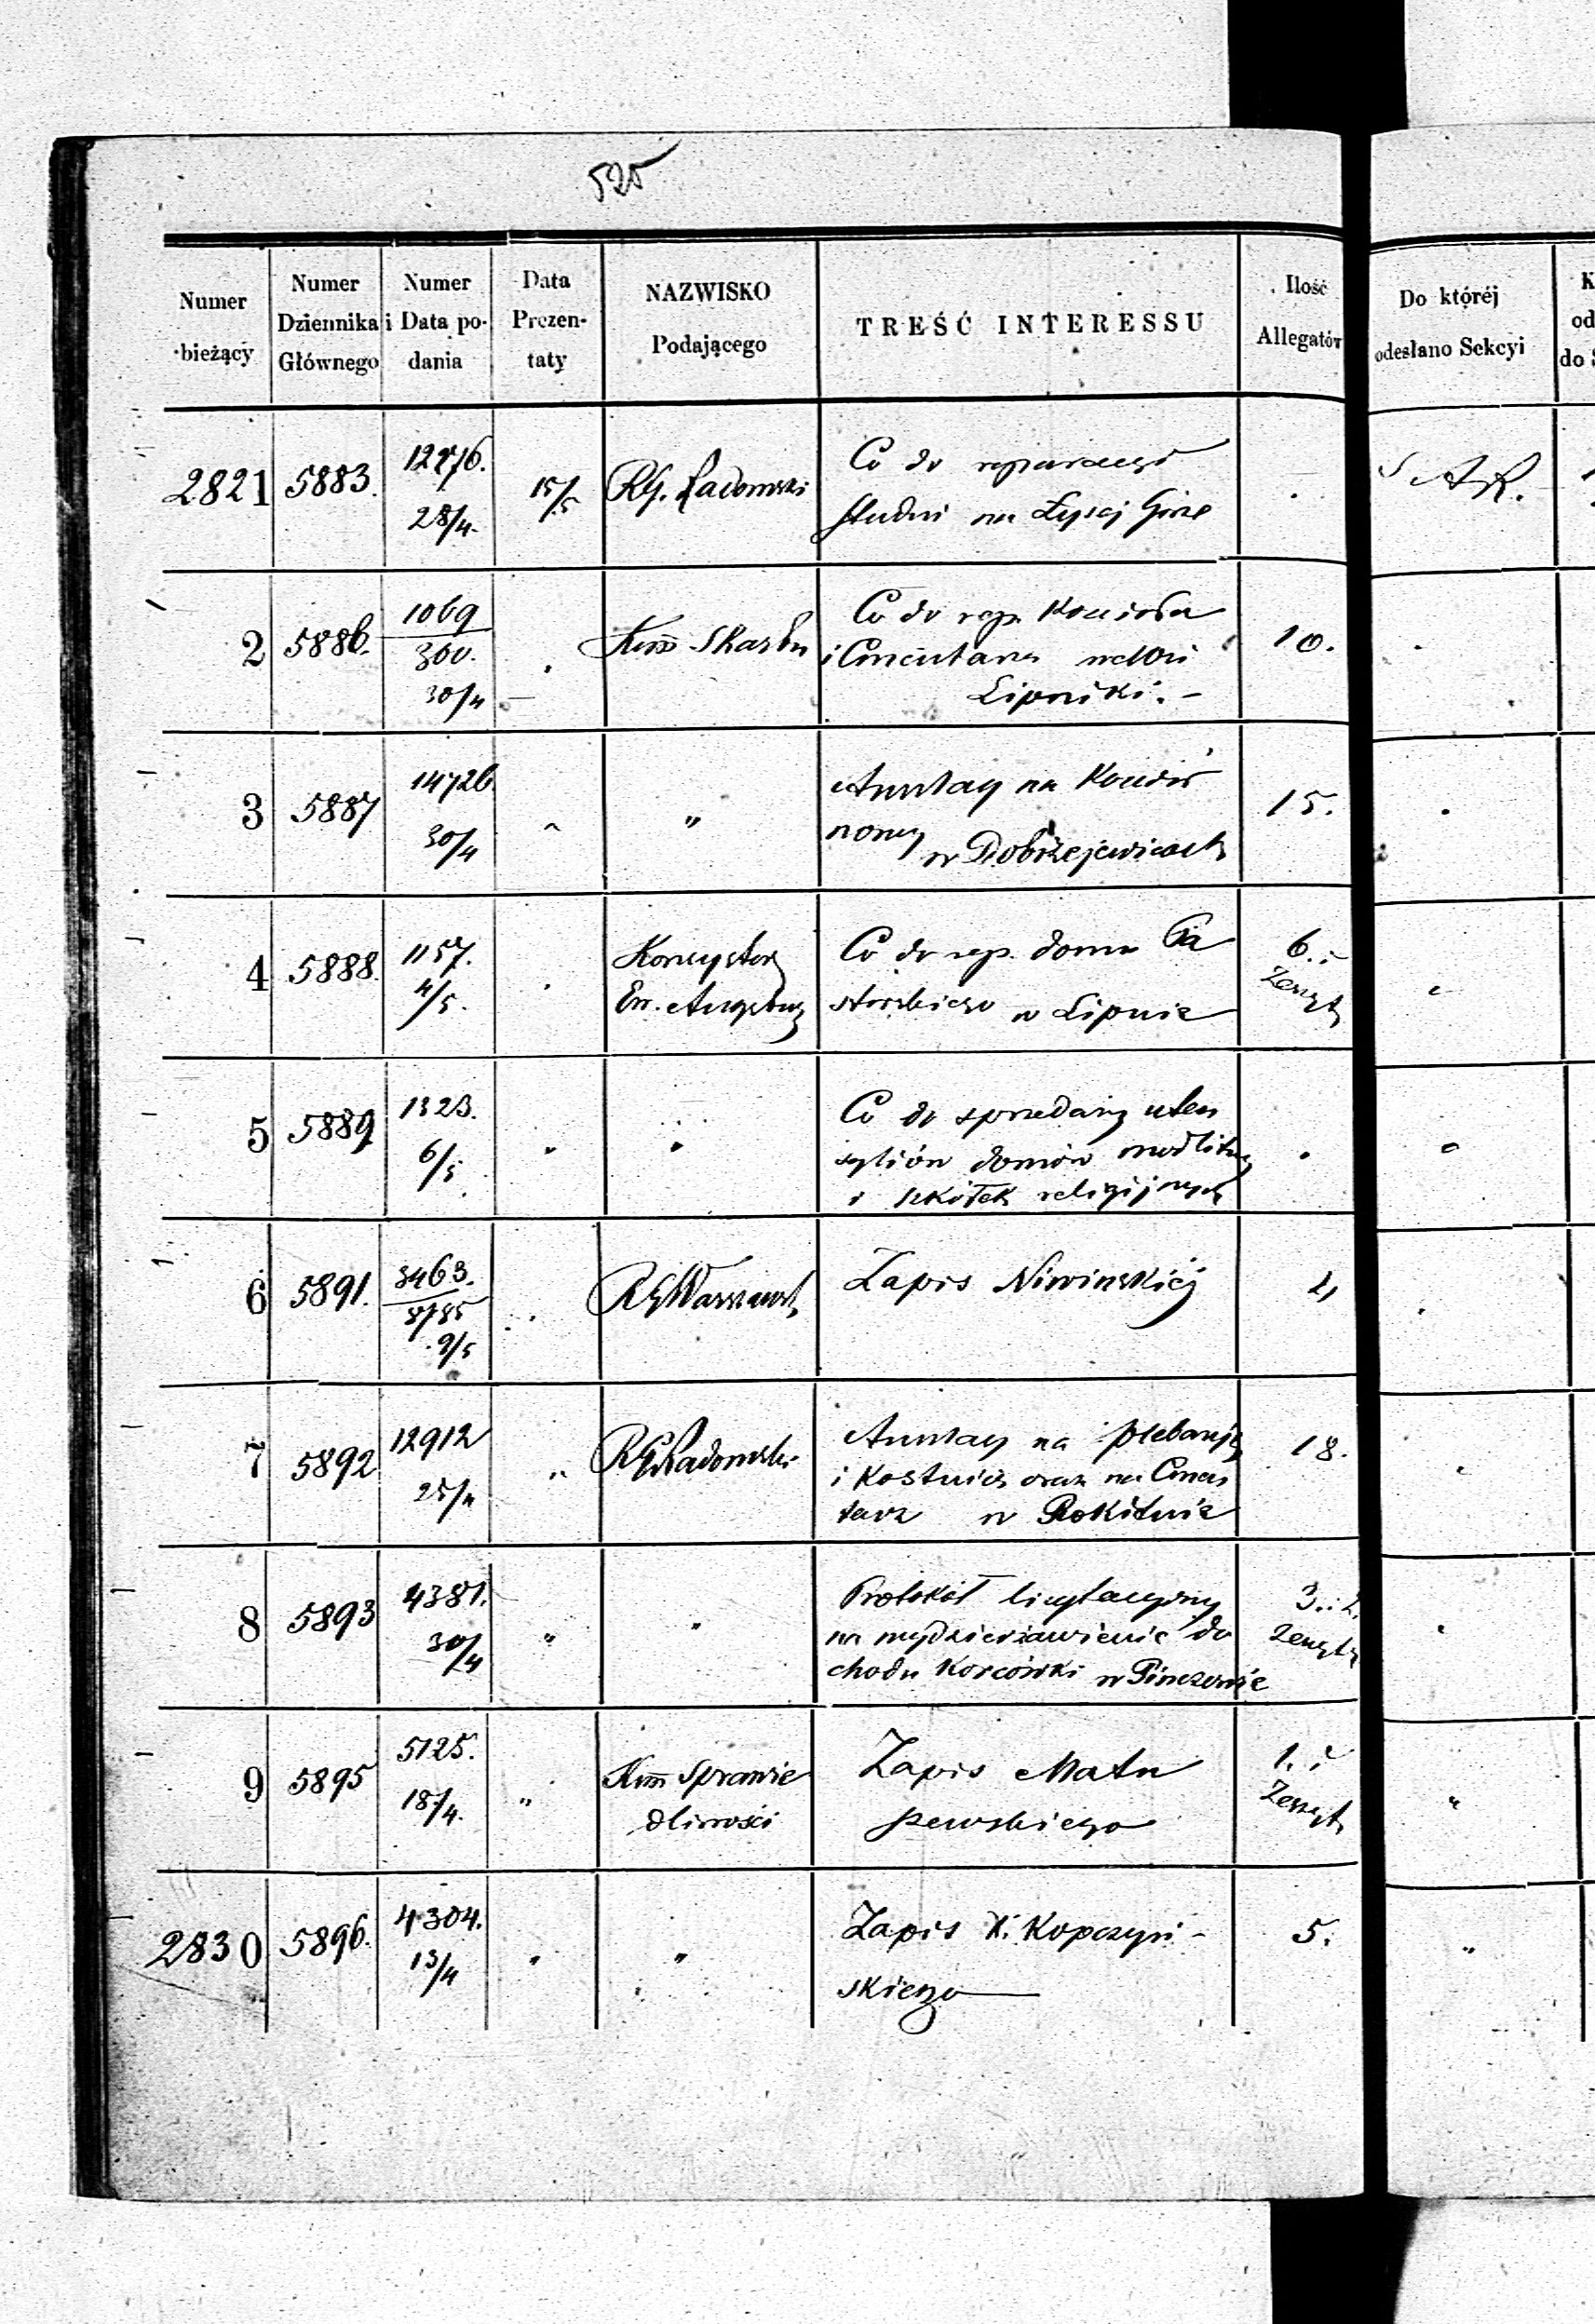 525
Numer bieżący
Numer Dziennika Głównego
Numer i Data po- dania
Data Prezen- taty
NAZWISKO Podającego
TREŚĆ INTERESSU
Ilość Allegatów
Do któréj odesłano Sekcyi
K
od
do
2821 5883. 12276. 28/4. 15/5 RG. Radomski Co do reparacyi
studni na Łysej Górze
2 5886. 1069 360. 30/4 Kom Skarbu Co do rep. Kościoła 10.
i Cmentarza we Wsi
Lipniki. -
3 5887 14726. 30/4 " Anszlag na Kościół 15.
nowy
w Dobrzejewicach
4 5888. 1157. 4/5. Konsystorz Co do rep. domu Pa 6. i
Ew. Augsburg storskiego w Lipnie Zeszyt
5 5889 1323. 6/5. " " Co do sprzedaży uten
syliów domów modlitwy
i szkółek religijnych
6 5891. 3463. 8785 9/5 RG Warszawsk Zapis Niwinskiéj 4
7 5892 12912 25/4 " RG Radomski Anszlag na plebanję 18.
i Kostnicę oraz na Cmen
tarz w Rokitnie
8 5893 4381. 30/4 " " Protokół licytacyjny 3. i 2.
na wydzierżawienie do Zeszyty
chodu Korcówki w Pinczowie
9 5895 5125. 18/4. " Kom Sprawie Zapis Matu 1. i
dliwości szewskiego Zeszyt "
2830 5896. 4304. 13/4 " " Zapis K. Kopczyń - 5. "
skiego